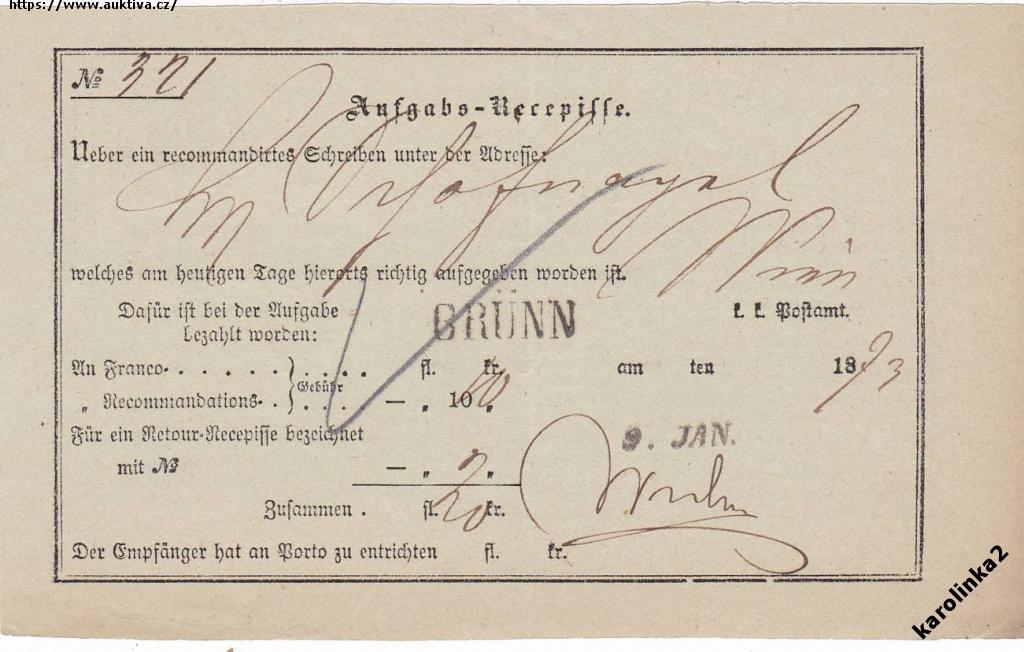 https://www.auktiva.cz/
№ 321
Aufgabs-Recepisse.
Ueber ein recommandirtes Schreiben unter der Adresse:
Wien
welches am heutigen Tage hierorts richtig aufgegeben worden ist.
Dafür ist bei der Aufgabe
bezahlt worden:
GRÜNN
k. k. Postamt.
An Franco . . . . . . . . . fl. 10 kr. am ten 1873
„ Recommandations- . Gebühr . . . — „ 10 „
Für ein Retour-Recepisse bezeichnet
9. JAN.
mit № — „ „
Zusammen . fl. 20 kr.
Der Empfänger hat an Porto zu entrichten fl. kr.
karolinka2